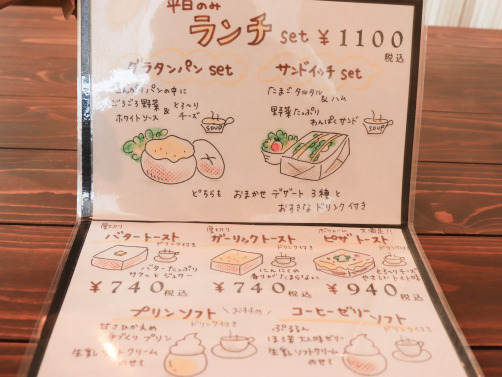 平日のみ
ランチ set ¥1100
税込
グラタンパン set
パンの中に
ごろごろ野菜 & とろ〜り
ホワイトソース チーズ
SOUP
サンドイッチ set
たまごタルタル
& ハム
野菜たっぷり
わんぱくサンド
SOUP
どちらも おまかせ デザート 3種と
おすきな ドリンク付き
厚切り
バタートースト
ドリンク付き
バターたっぷり
サクッとジュワ〜
¥740 税込
厚切り
ガーリックトースト
ドリンク付き
にんにくの
香りがたまらない
¥740 税込
ボリューム 大満足!!
ピザトースト
ドリンク付き
とろ〜りチーズ
やさしいトマト味
¥940 税込
プリンソフト
ドリンク付き
甘さひかえめ
手づくりプリン
生乳ソフトクリーム
のせて
\おすすめ/
コーヒーゼリーソフト
ドリンク付き
ぷるるん
ほろ苦 ゼリー
生乳ソフトクリーム
のせて